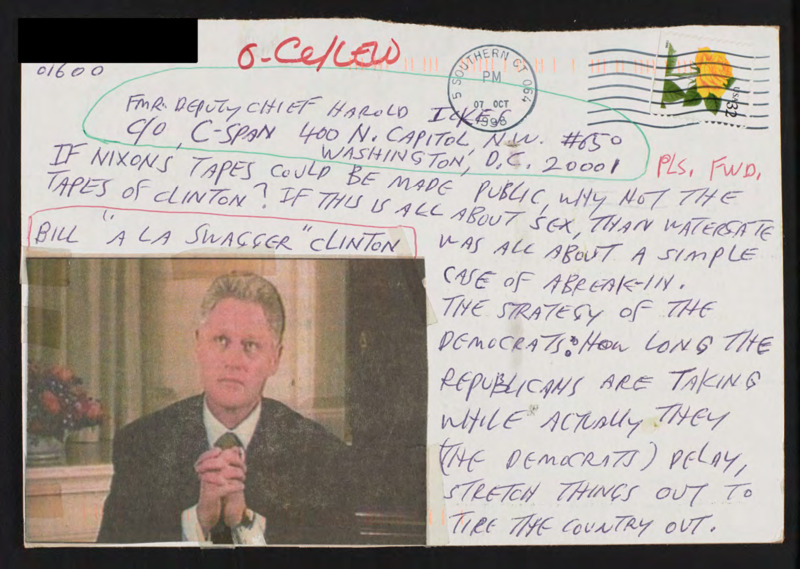 01600
σ-Ce/LEW
SOUTHERN CT 064
PM
07 OCT
1998
USA 32
FMR. DEPUTY CHIEF HAROLD ICKES
C/O C-SPAN 400 N. CAPITOL, N.W. #650
WASHINGTON, D.C. 20001
PLS. FWD.
IF NIXONS TAPES COULD BE MADE PUBLIC, WHY NOT THE
TAPES OF CLINTON? IF THIS IS ALL ABOUT SEX, THAN WATERGATE
WAS ALL ABOUT A SIMPLE
CASE OF A BREAK-IN.
THE STRATEGY OF THE
DEMOCRATS: HOW LONG THE
REPUBLICANS ARE TAKING
WHILE ACTUALLY THEY
(THE DEMOCRATS) DELAY,
STRETCH THINGS OUT TO
TIRE THE COUNTRY OUT.
BILL "A LA SWAGGER" CLINTON